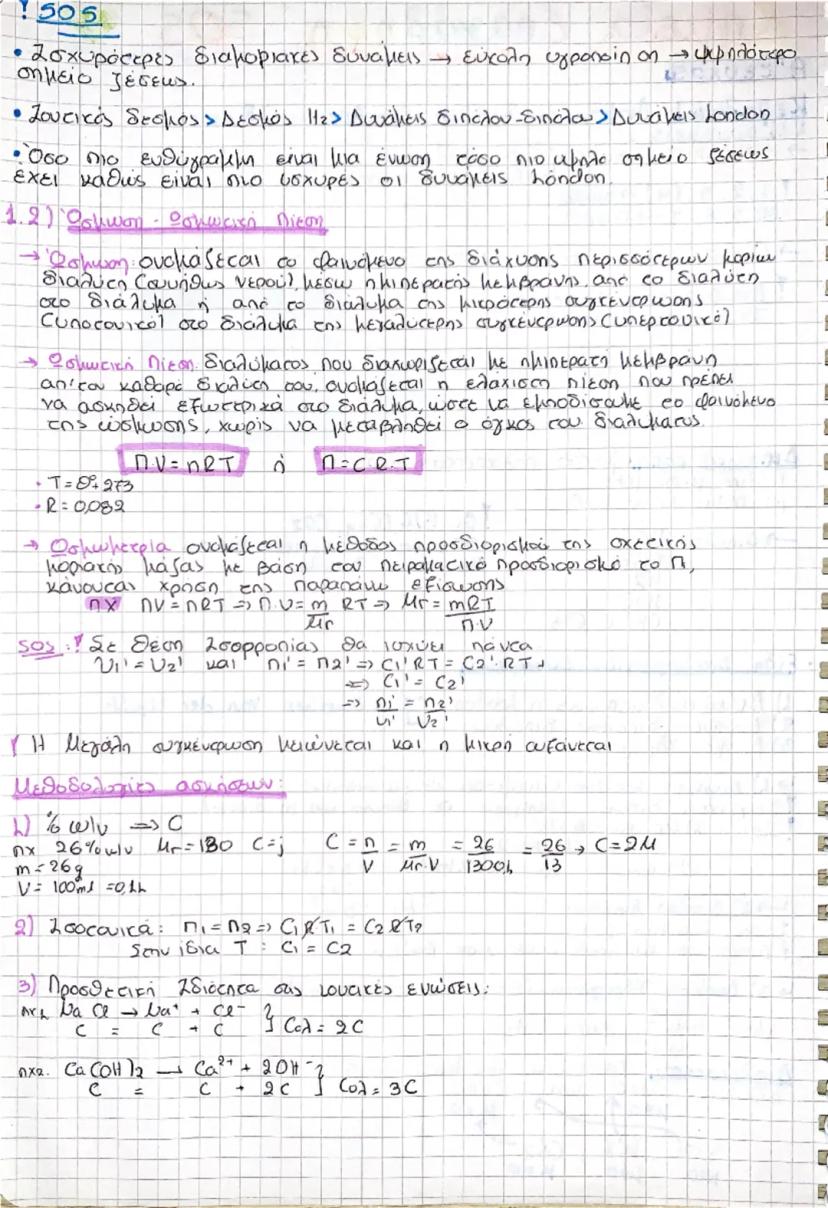 ! SOS
• Ισχυρότερες διαμοριακές δυνάμεις → εύκολη υγροποίηση → υψηλότερο
σημείο ζέσεως.
• Ιοντικός δεσμός > Δεσμός H₂ > Δυνάμεις διπόλου-διπόλου > Δυνάμεις London
• Όσο πιο ευθύγραμμη είναι μια ένωση τόσο πιο υψηλό σημείο ζέσεως
έχει καθώς είναι πιο ισχυρές οι δυνάμεις London.
1.2) Ώσμωση - Ωσμωτική Πίεση
→ Ώσμωση ονομάζεται το φαινόμενο της διάχυσης περισσότερων μορίων
διαλύτη (συνήθως νερού), μέσω ημιπερατής μεμβράνης, από το διαλύτη
στο διάλυμα ή από το διάλυμα της μικρότερης συγκέντρωσης
(υποτονικό) στο διάλυμα της μεγαλύτερης συγκέντρωσης (υπερτονικό)
→ Ωσμωτική Πίεση διαλύματος που διαχωρίζεται με ημιπερατή μεμβράνη
απ'τον καθαρό διαλύτη του, ονομάζεται η ελάχιστη πίεση που πρέπει
να ασκηθεί εξωτερικά στο διάλυμα, ώστε να εμποδίσουμε το φαινόμενο
της ώσμωσης, χωρίς να μεταβληθεί ο όγκος του διαλύματος.
Π·V = nRT ή Π = C·R·T
• T = θ°+273
• R = 0,082
→ Ωσμωμετρία ονομάζεται η μέθοδος προσδιορισμού της σχετικής
μοριακής μάζας με βάση τον πειραματικό προσδιορισμό το Π,
κάνοντας χρήση της παραπάνω εξίσωσης
πχ ΠV = nRT => Π·V = m/Mr RT => Mr = mRT/Π·V
SOS:! Σε Θέση Ισορροπίας θα ισχύει πάντα
V₁' = V₂' και Π₁' = Π₂' => C₁'RT = C₂'·RT
=> C₁' = C₂'
=> n₁'/V₁' = n₂'/V₂'
! Η Μεγάλη συγκέντρωση μειώνεται και η μικρή αυξάνεται
Μεθοδολογίες ασκήσεων:
1) % w/v => C
πχ 26% w/v Mr = 130 C = ; C = n/V = m/Mr·V = 26/130·0,1 = 26/13 → C = 2M
m = 26g
V = 100ml = 0,1L
2) Ισοτονικά: Π₁ = Π₂ => C₁RT₁ = C₂RT₂
Στην ίδια T : C₁ = C₂
3) Προσθετική Ιδιότητα στις ιοντικές ενώσεις:
πχ1. NaCl → Na⁺ + Cl⁻
C = C + C } Cολ = 2C
πχ2. Ca(OH)₂ → Ca²⁺ + 2OH⁻
C = C + 2C } Cολ = 3C